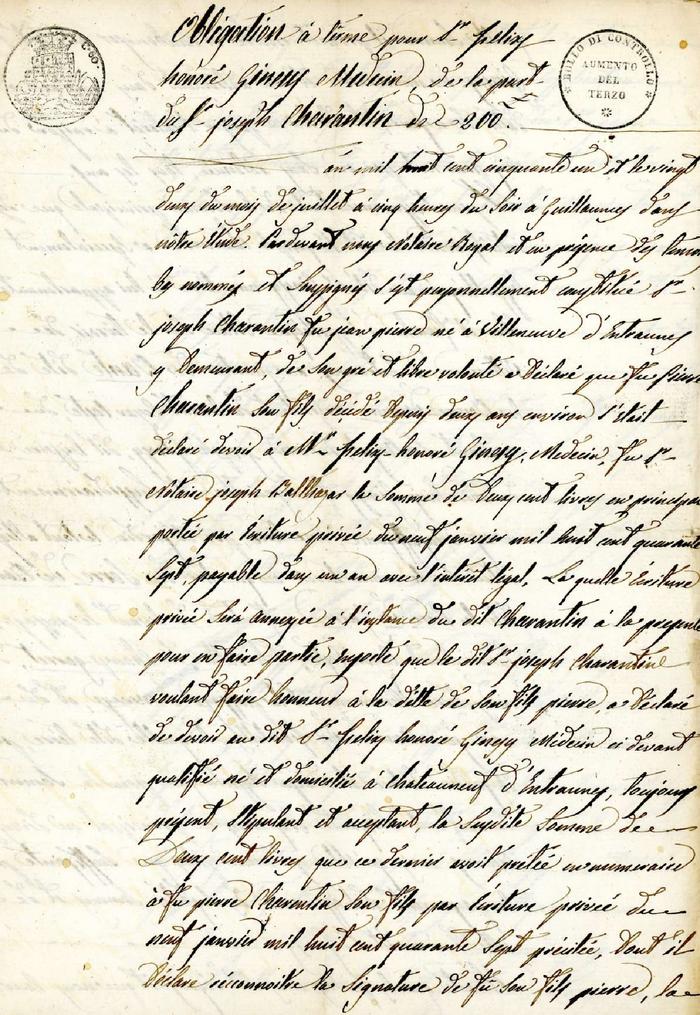 Obligation à terme pour Sr felix
honoré Ginesy Medecin, de la part
du Sr joseph Charantin de 200.
C. 60.
BOLLO DI CONTROLLO
AUMENTO
DEL
TERZO
an mil huit cent cinquante un et le vingt
deux du mois de juillet à cinq heures du soir à Guillaumes dans
notre Etude. Pardevant nous Notaire Royal et en présence des temoins
bas nommés et soussignés s'est personnellement constitué Sr
joseph Charantin fu jean pierre né à Villeneuve d'Entraunes
y demeurant, de son gré et libre volonté a déclaré que fu pierre
Charantin son fils décédé depuis deux ans environ s'était
déclaré devoir à Mr felix honoré Ginesy, Medecin, fu Sr
Notaire joseph Balthazar la somme de deux cent livres en principal
portée par écriture privée du neuf janvier mil huit cent quarante
sept, payable dans un an avec l'intérêt légal, La quelle écriture
privée sera annexée à l'instance du dit Charantin à la presente
pour en faire partie, que le dit Sr joseph Charantin
voulant faire honneur à la dette de son fils pierre, a déclaré
de devoir au dit Sr felix honoré Ginesy Medecin ci devant
qualifié né et domicilié à Chateauneuf d'Entraunes, toujours
présent, stipulant et acceptant, la susdite somme de
Deux cent livres que ce dernier avoit prêtée en numeraire
à fu pierre Charentin son fils par écriture privée du
neuf janvier mil huit cent quarante sept précitée, dont il
déclare réconnoitre la signature de fu son fils pierre, la